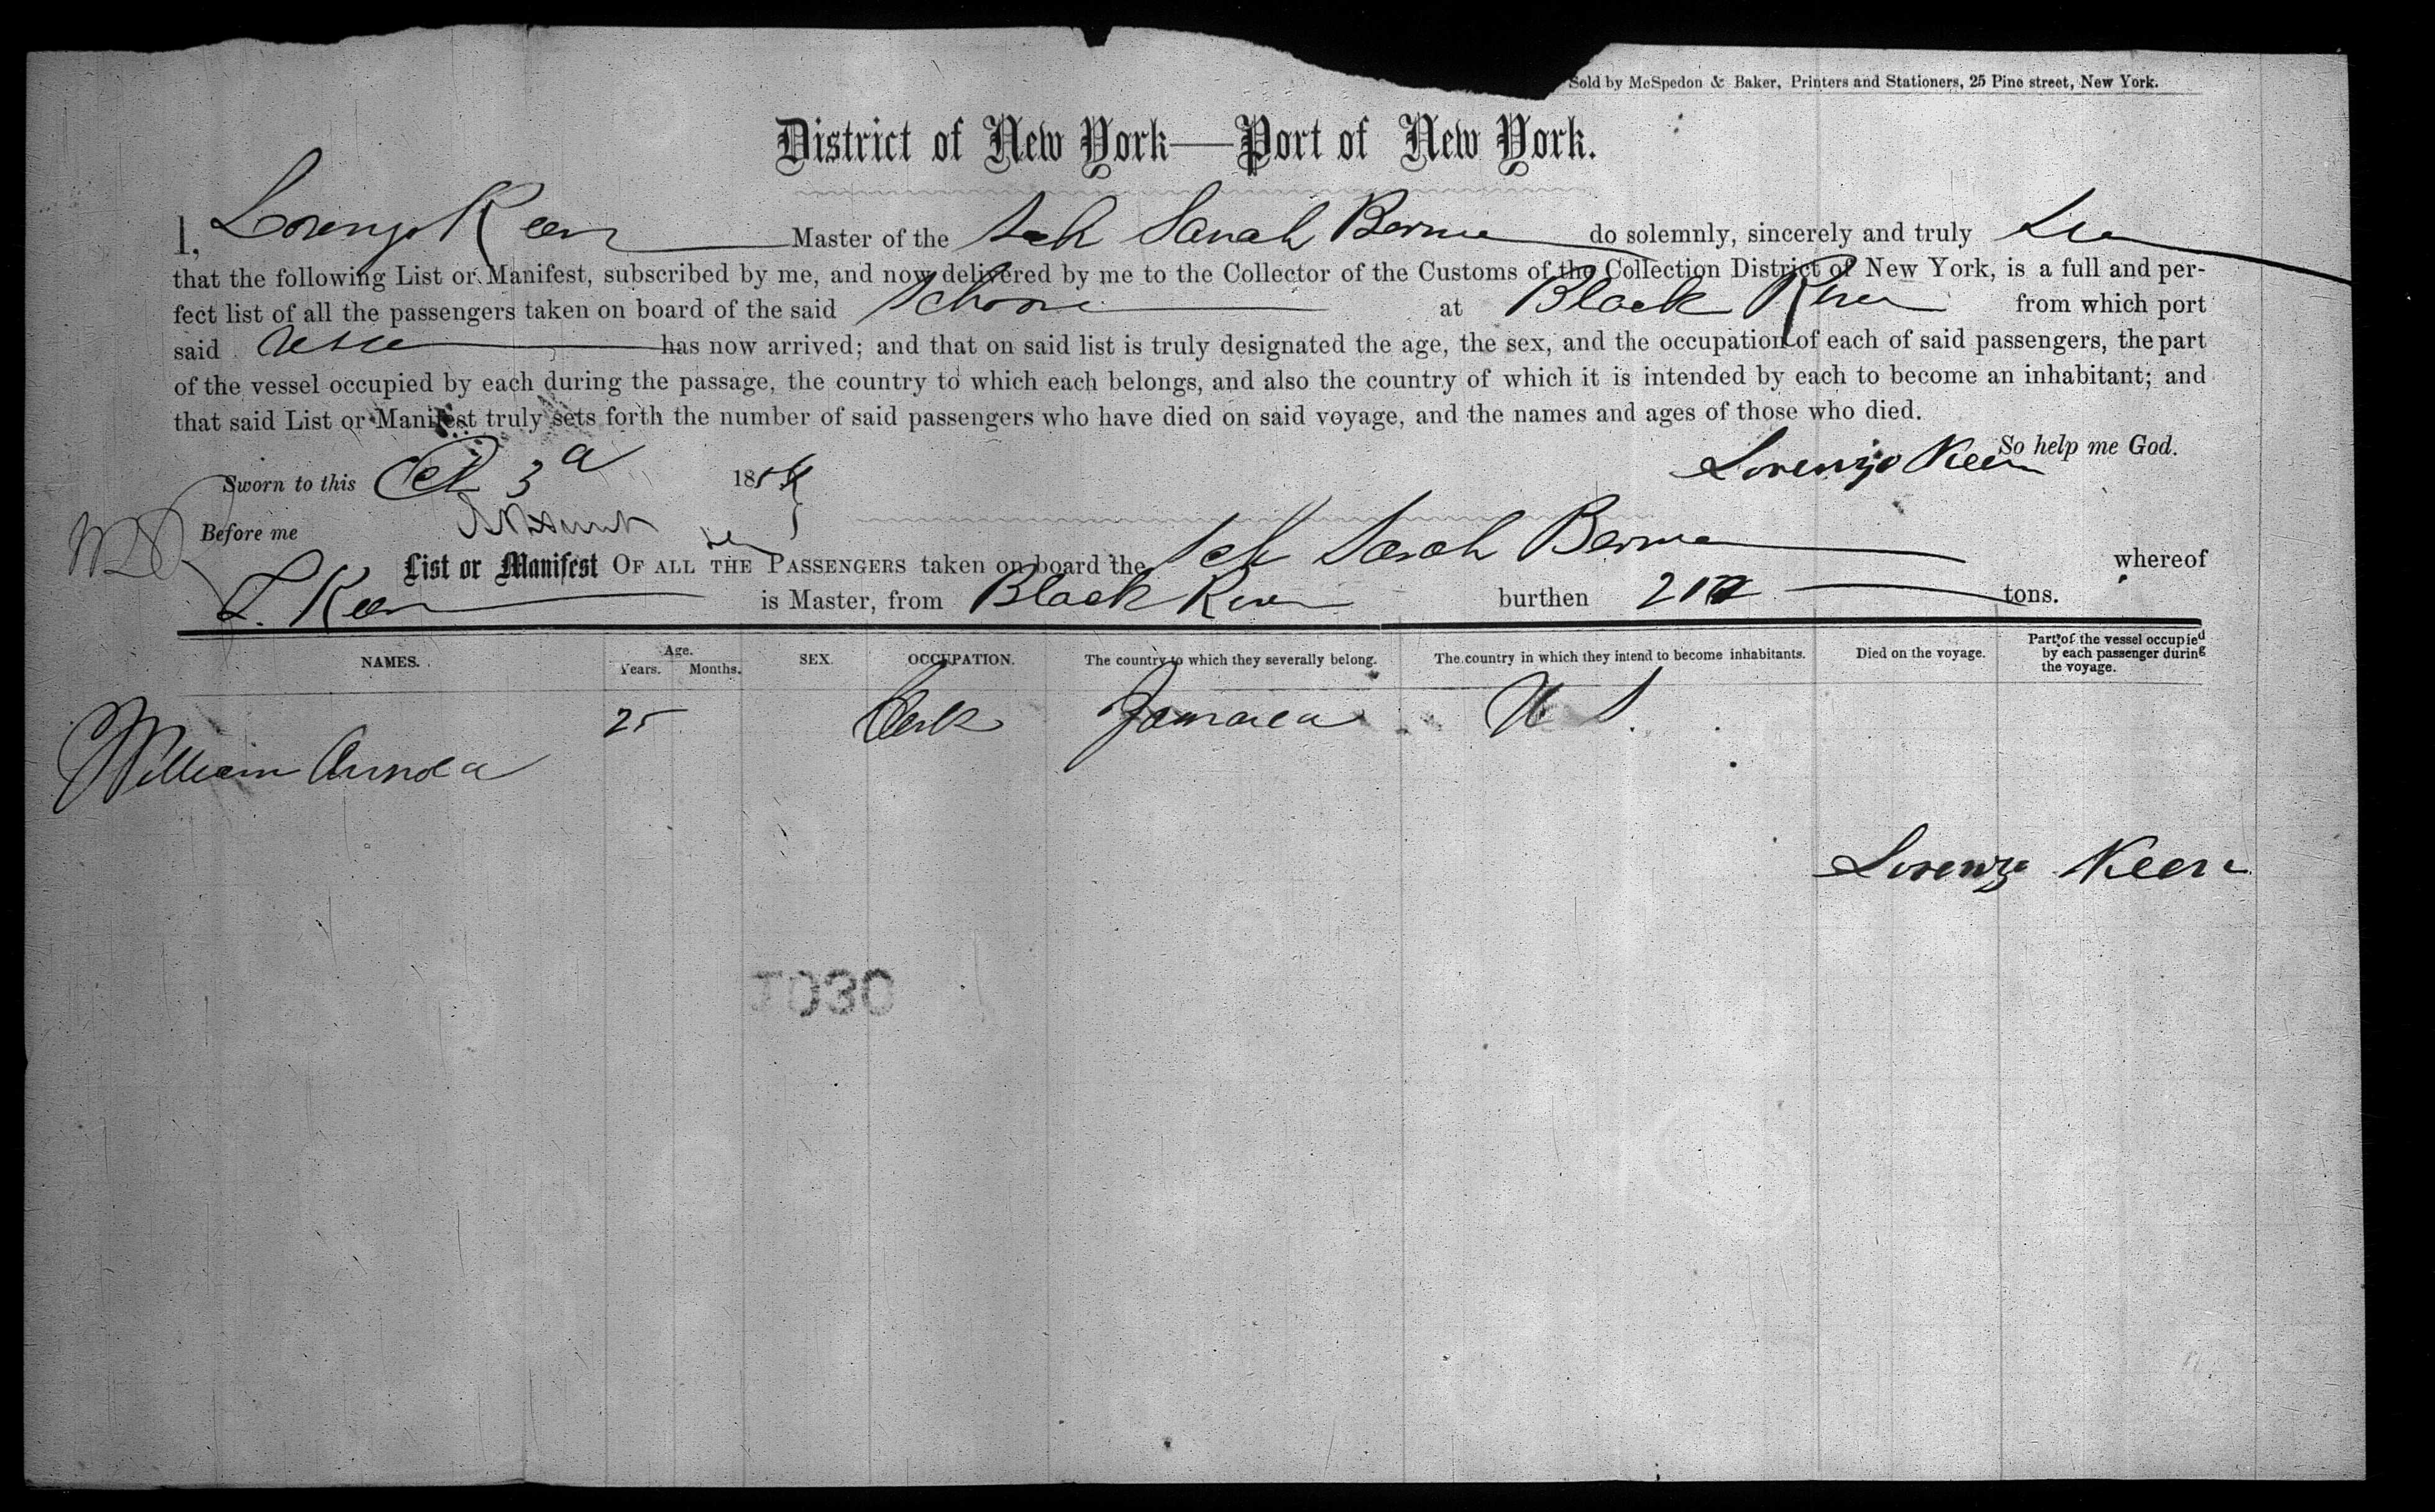 Sold by McSpedon & Baker, Printers and Stationers, 25 Pine street, New York.
District of New York—Port of New York.
I, Lorenzo Keen Master of the Sch Sarah Bernice do solemnly, sincerely and truly
that the following List or Manifest, subscribed by me, and now delivered by me to the Collector of the Customs of the Collection District of New York, is a full and per-
fect list of all the passengers taken on board of the said Schooner at Black River from which port
said has now arrived; and that on said list is truly designated the age, the sex, and the occupation of each of said passengers, the part
of the vessel occupied by each during the passage, the country to which each belongs, and also the country of which it is intended by each to become an inhabitant; and
that said List or Manifest truly sets forth the number of said passengers who have died on said voyage, and the names and ages of those who died.
So help me God.
Sworn to this Oct 3d 1854 Lorenzo Keen
Before me
List or Manifest OF ALL THE PASSENGERS taken on board the Sch Sarah Bernice whereof
L. Keen is Master, from Black River burthen tons.
NAMES. Age. Years. Months. SEX. OCCUPATION. The country to which they severally belong. The country in which they intend to become inhabitants. Died on the voyage. Part of the vessel occupied by each passenger during the voyage.
William Arnold 25 Clerk Jamaica U S.
Lorenzo Keen
1030